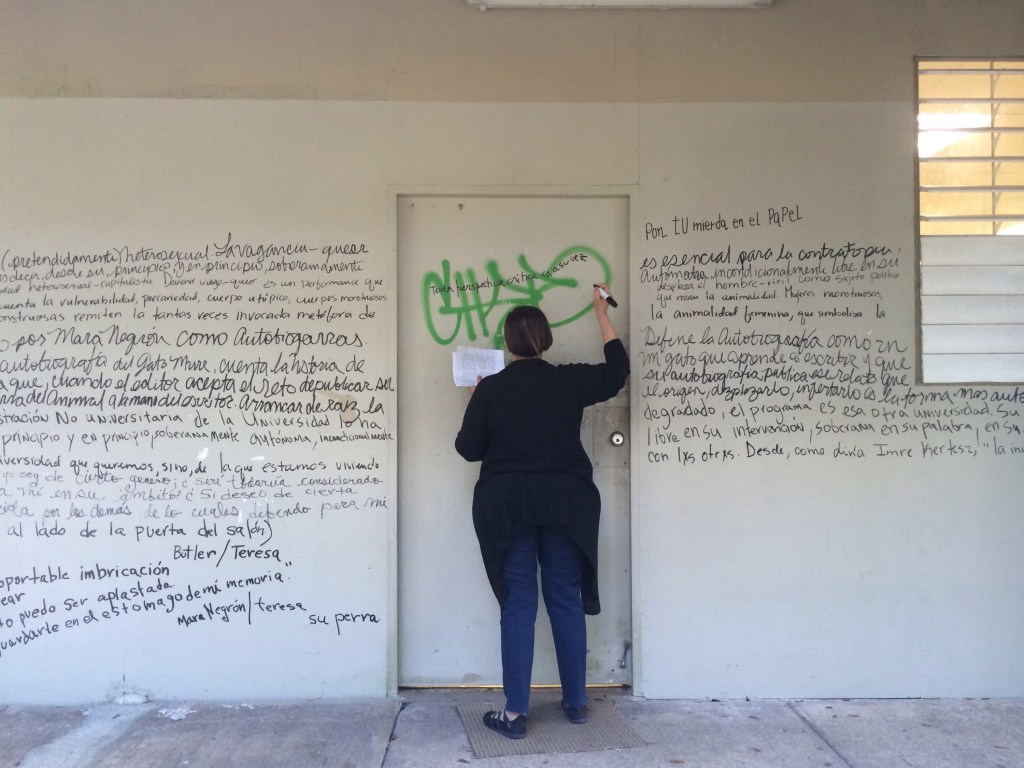 (pretendidamente) heterosexual La vagancia-queer
es decir, desde su principio, y en principio, soberanamente
dad heterosexual-capitalista. Devenir vago-queer es un performance que
cuenta la vulnerabilidad, precariedad, cuerpo utópico, cuerpos monstruosos
onstruosas remiten la tantas veces invocada metáfora de
o por Mara Negrón como Autobiogarras
autobiografía del Gato Murr, cuenta la historia de
que, cuando el editor acepta el reto de publicar su
del Animal a la mano del escritor. Arrancar de raíz la
stración No Universitaria de la Universidad
principio y en principio, soberanamente autónoma, incondicionalmente
iversidad que queremos, sino, de la que estamos viviendo
yo soy de cierto género; ¿ seré todavía considerado
a mí en su ámbito? ¿ Si deseo de cierta
por los demás de lo cuales dependo para mi
al lado de la puerta del salón)
Butler/Teresa
oportable imbricación
ear
to puedo ser aplastada
guardarte en el estomago de mi memoria."
Mara Negrón/teresa
su perra
Toda perspectiva crítica es a su vez
Pon TU mierda en el PaPeL
es esencial para la contratopía,
Autómata, incondicionalmente libre en su
desplaza el hombre-viril como sujeto político
que rozan la animalidad. Mujeres monstruosas,
la animalidad femenina, que simboliza la
Define la Autobiografía como un
mi gato que aprende a escribir y que
su autobiografía, publica ese relato que
de origen, desplazarlo, injertarlo es la forma mas auto
degradado, el programa es esa otra universidad. Su
libre en su intervención, soberana en su palabra, en su
con lxs otrxs. Desde, como diría Imre Kertesz, "la in